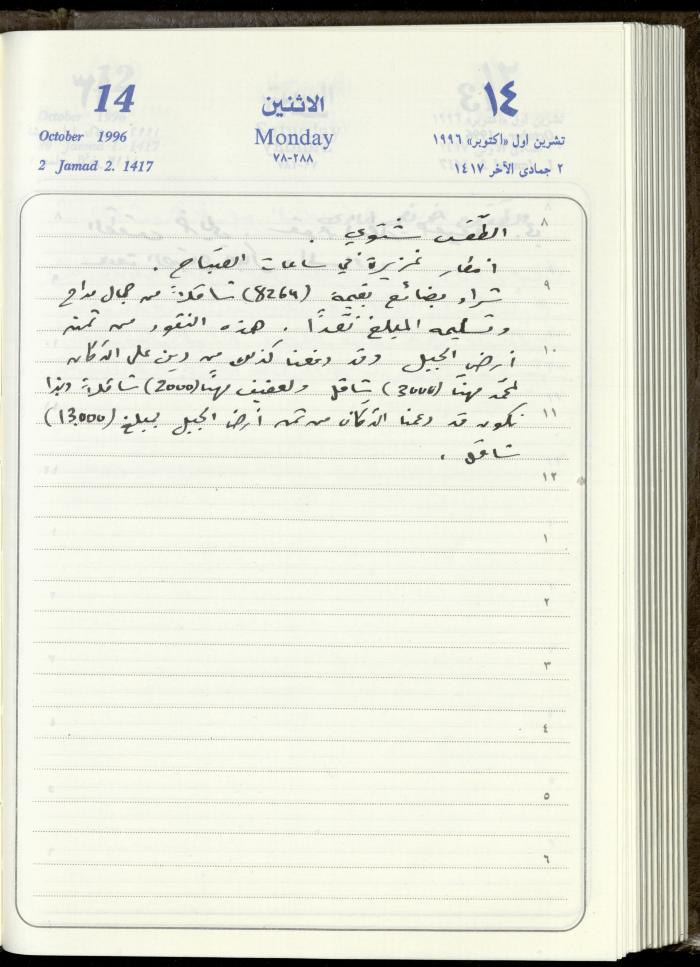 14
October 1996
2 Jamad 2. 1417
الاثنين
Monday
٢٨٨-٧٨
١٤
تشرين اول «اكتوبر» ١٩٩٦
٢ جمادى الآخر ١٤١٧
٨
الطقس شتوي .
أمطار غزيرة في ساعات الصباح .
٩
شراء بضائع بقيمة (8264) شاقلاً من جمال مداح
وتسليمه المبلغ نقداً . هذه النقود من ثمن
١٠
أرض الجبل وقد دفعنا كذلك من دين على الدكان
لمحمد مهنّا (3000) شاقل ولعفيف مهنّا (2000) شاقلاً وبهذا
١١
نكون قد دعمنا الدكان من ثمن أرض الجبل بمبلغ (13.000)
شاقل .
١٢
١
٢
٣
٤
٥
٦